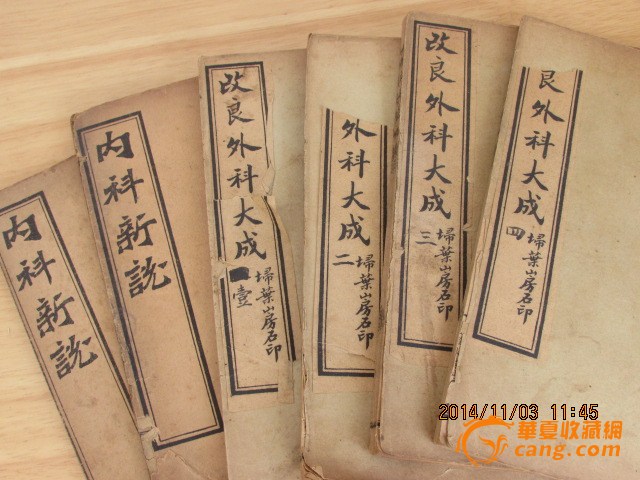 内科新説
内科新説
改良外科大成
壹
掃葉山房石印
外科大成
二
掃葉山房石印
改良外科大成
三
掃葉山房石印
良外科大成
四
掃葉山房石印
2014/11/03 11:45
華夏收藏網
cang.com